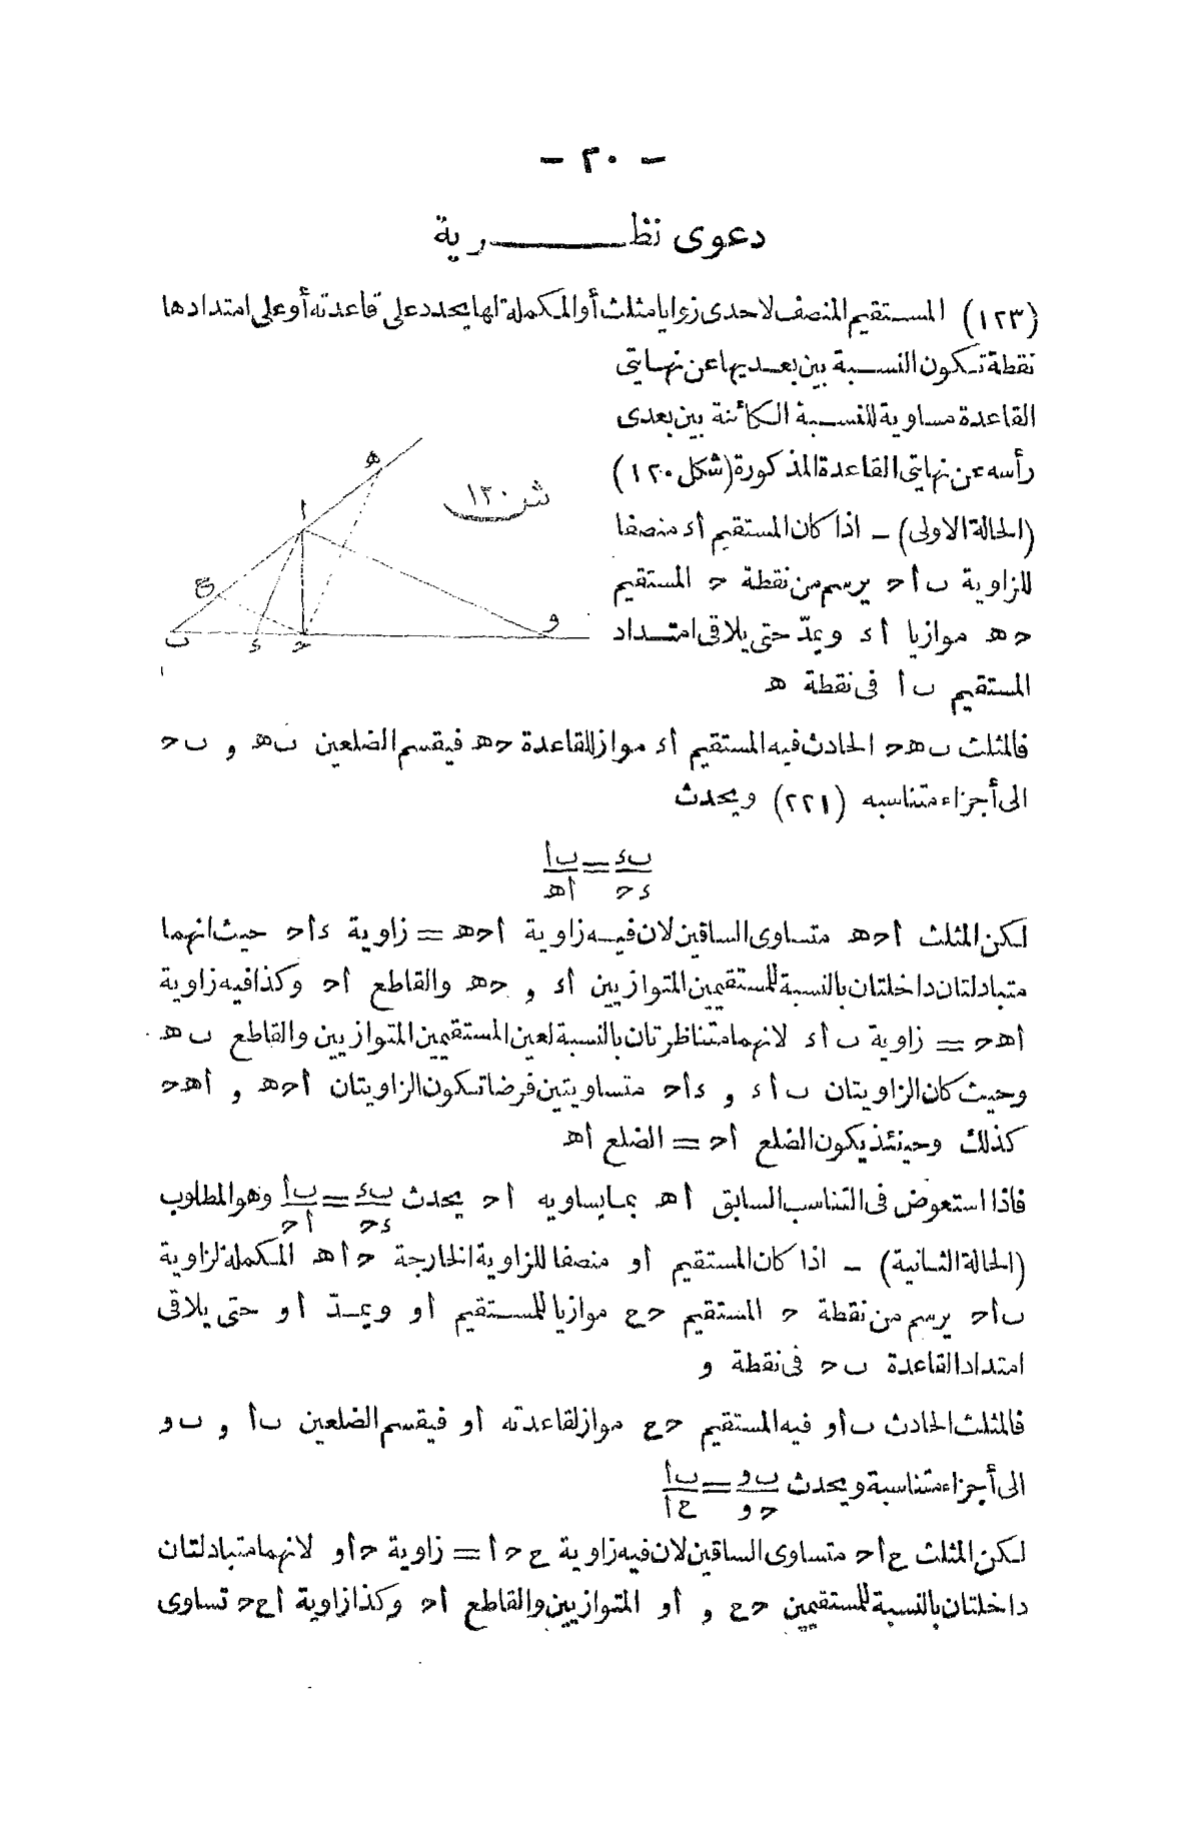 - ٢٠ -
دعوى نظـــــرية
(١٢٣) المستقيم المنصف لاحدى زوايا مثلث أوالمكملة لها يحدد على قاعدته أوعلى امتدادها
نقطة تكون النسبة بين بعديها عن نهايتى
القاعدة مساوية للنسبة الكائنة بين بعدى
رأسه عن نهايتى القاعدة المذكورة (شكل ١٢٠)
(الحالة الاولى) - اذا كان المستقيم أء منصفا
للزاوية ب أ ح يرسم من نقطة ح المستقيم
ح هـ موازيا أء ويمدّ حتى يلاقى امتداد
المستقيم ب أ فى نقطة هـ
ش ١٢٠
هـ
ا
ع
ب
ء
ح
و
فالمثلث ب هـ ح الحادث فيه المستقيم أء مواز للقاعدة ح هـ فيقسم الضلعين ب هـ و ب ح
الى أجزاء متناسبه (٢٢١) ويحدث
ب ء / ء ح = ب أ / أهـ
لكن المثلث أ ح هـ متساوى الساقين لان فيه زاوية أ ح هـ = زاوية ء أ ح حيث انهما
متبادلتان داخلتان بالنسبة للمستقيمين المتوازيين أء و ح هـ والقاطع أ ح وكذا فيه زاوية
أ هـ ح = زاوية ب أ ء لانهما متناظرتان بالنسبة لعين المستقيمين المتوازيين والقاطع ب هـ
وحيث كان الزاويتان ب أ ء و ء أ ح متساويتين فرضا تكون الزاويتان أ ح هـ و أ هـ ح
كذلك وحينئذ يكون الضلع أ ح = الضلع أ هـ
فاذا استعوض فى التناسب السابق أ هـ بما يساويه أ ح يحدث ب ء / ء ح = ب أ / أ ح وهو المطلوب
(الحالة الثانية) - اذا كان المستقيم أ و منصفا للزاوية الخارجة ح أ هـ المكملة لزاوية
ب أ ح يرسم من نقطة ح المستقيم ح ع موازيا للمستقيم أ و ويمدّ أ و حتى يلاقى
امتداد القاعدة ب ح فى نقطة و
فالمثلث الحادث ب أ و فيه المستقيم ح ع مواز لقاعدته أ و فيقسم الضلعين ب أ و ب و
الى أجزاء متناسبة ويحدث ب و / ح و = ب أ / ع أ
لكن المثلث ع أ ح متساوى الساقين لان فيه زاوية ع ح أ = زاوية ح أ و لانهما متبادلتان
داخلتان بالنسبة للمستقيمين ح ع و أ و المتوازيين والقاطع أ ح وكذا زاوية أ ع ح تساوى